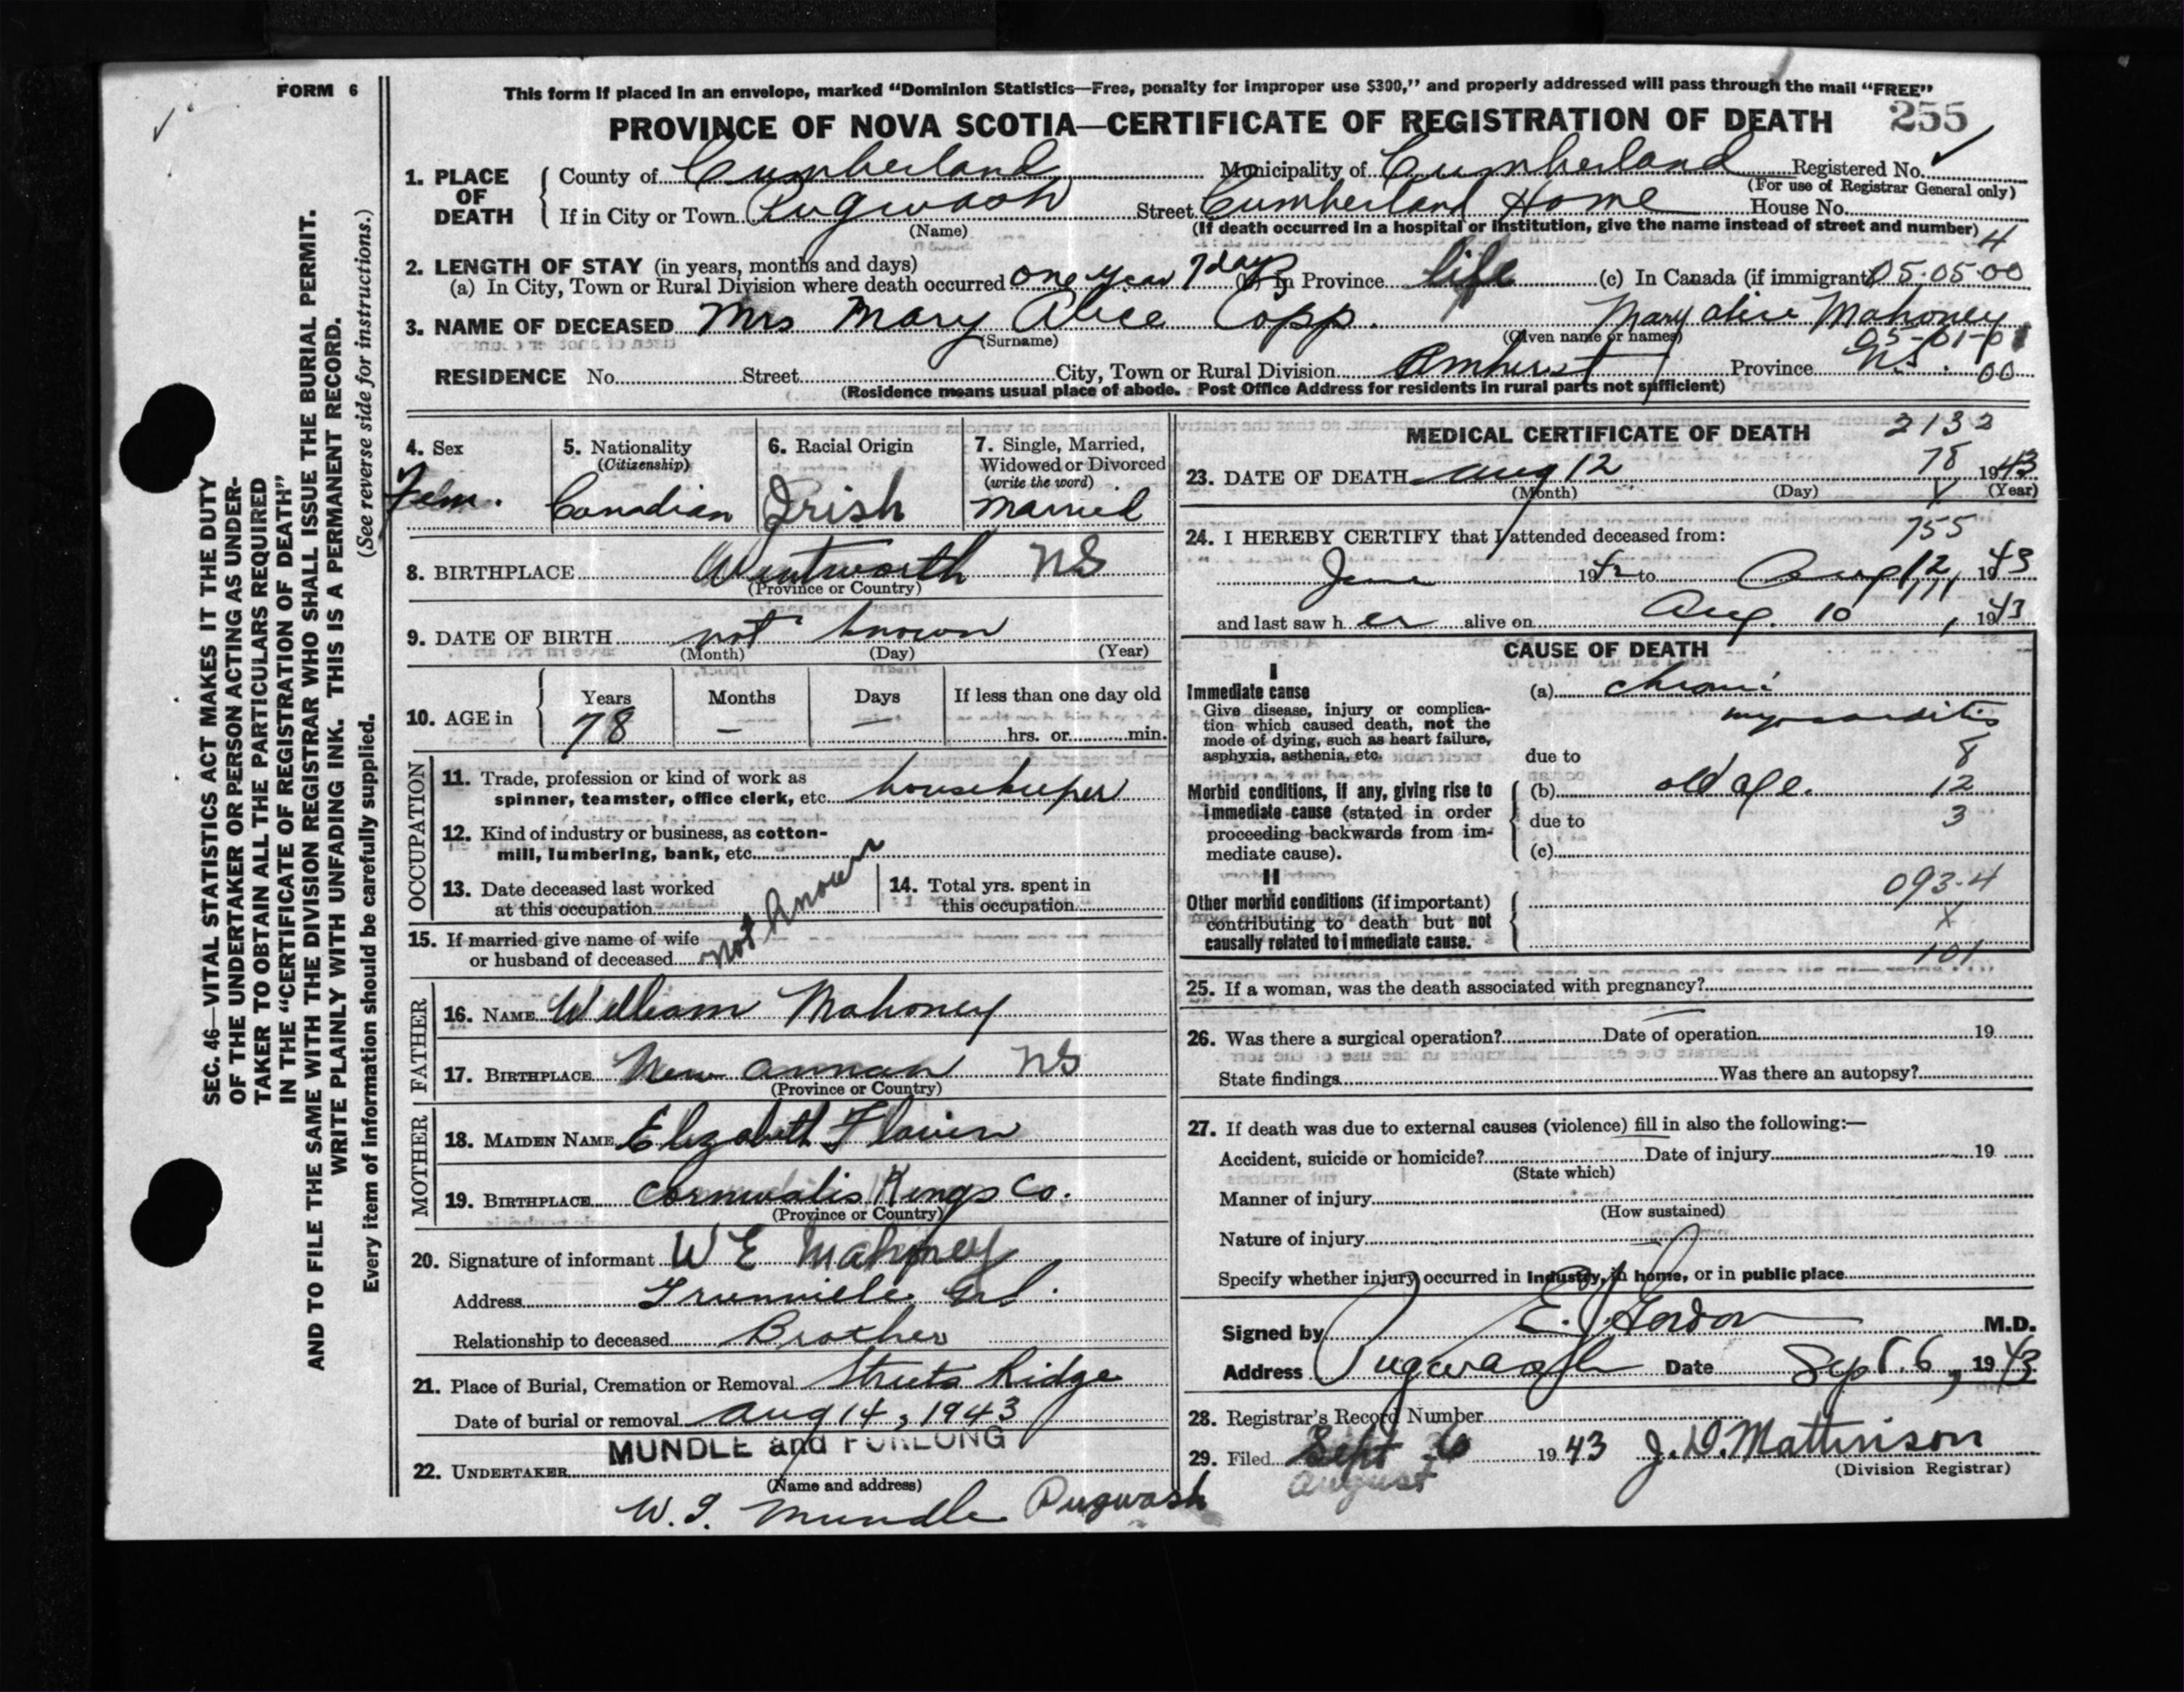 FORM 6
This form if placed in an envelope, marked "Dominion Statistics—Free, penalty for improper use $300," and properly addressed will pass through the mail "FREE"
PROVINCE OF NOVA SCOTIA—CERTIFICATE OF REGISTRATION OF DEATH 255
1. PLACE OF DEATH County of Cumberland Municipality of Cumberland Registered No.
(For use of Registrar General only)
If in City or Town Pugwash Street Cumberland Home House No.
(Name) (If death occurred in a hospital or institution, give the name instead of street and number) 4
2. LENGTH OF STAY (in years, months and days)
(a) In City, Town or Rural Division where death occurred one year 7 days (b) In Province life (c) In Canada (if immigrant) 05-05-00
3. NAME OF DECEASED Mrs Mary Alice Copp. Mary alice Mahoney
(Surname) (Given name or names) 05-01-01
RESIDENCE No. Street City, Town or Rural Division Amherst Province N.S. 00
(Residence means usual place of abode. Post Office Address for residents in rural parts not sufficient)
SEC. 46—VITAL STATISTICS ACT MAKES IT THE DUTY
OF THE UNDERTAKER OR PERSON ACTING AS UNDER-
TAKER TO OBTAIN ALL THE PARTICULARS REQUIRED
IN THE "CERTIFICATE OF REGISTRATION OF DEATH"
AND TO FILE THE SAME WITH THE DIVISION REGISTRAR WHO SHALL ISSUE THE BURIAL PERMIT.
WRITE PLAINLY WITH UNFADING INK. THIS IS A PERMANENT RECORD.
(See reverse side for instructions.)
Every item of information should be carefully supplied.
4. Sex 5. Nationality 6. Racial Origin 7. Single, Married,
(Citizenship) Widowed or Divorced
(write the word)
Fem. Canadian Irish Married
8. BIRTHPLACE Wentworth NS
(Province or Country)
9. DATE OF BIRTH not known
(Month) (Day) (Year)
10. AGE in Years Months Days If less than one day old
78 — — hrs. or min.
OCCUPATION
11. Trade, profession or kind of work as
spinner, teamster, office clerk, etc. housekeeper
12. Kind of industry or business, as cotton-
mill, lumbering, bank, etc.
13. Date deceased last worked
at this occupation
14. Total yrs. spent in
this occupation
15. If married give name of wife
or husband of deceased not known
FATHER
16. NAME William Mahoney
17. BIRTHPLACE New annan NS
(Province or Country)
MOTHER
18. MAIDEN NAME Elizabeth Flavin
19. BIRTHPLACE Cornwalis Kings Co.
(Province or Country)
20. Signature of informant W E Mahoney
Address
Relationship to deceased Brother
21. Place of Burial, Cremation or Removal Streets Ridge
Date of burial or removal aug 14, 1943
22. UNDERTAKER MUNDLE and FURLONG
(Name and address)
Mundle Pugwash
MEDICAL CERTIFICATE OF DEATH 2132
78
23. DATE OF DEATH aug 12 1943
(Month) (Day) (Year)
24. I HEREBY CERTIFY that I attended deceased from: 755
194 to Aug 12, 1943
and last saw her alive on Aug. 10, 1943
CAUSE OF DEATH
I
Immediate cause
Give disease, injury or complica-
tion which caused death, not the
mode of dying, such as heart failure,
asphyxia, asthenia, etc.
(a) chronic
myocarditis
due to 8
Morbid conditions, if any, giving rise to
immediate cause (stated in order
proceeding backwards from im-
mediate cause).
(b) old age. 12
due to 3
(c)
II
Other morbid conditions (if important)
contributing to death but not
causally related to immediate cause.
093-4
X
101
25. If a woman, was the death associated with pregnancy?
26. Was there a surgical operation? Date of operation 19
State findings Was there an autopsy?
27. If death was due to external causes (violence) fill in also the following:—
Accident, suicide or homicide? Date of injury 19
(State which)
Manner of injury
(How sustained)
Nature of injury
Specify whether injury occurred in Industry, in home, or in public place
Signed by Gordon M.D.
Address Pugwash Date Sept. 6, 1943
28. Registrar's Record Number
29. Filed Sept 1943 J. D. Mattinson
August (Division Registrar)